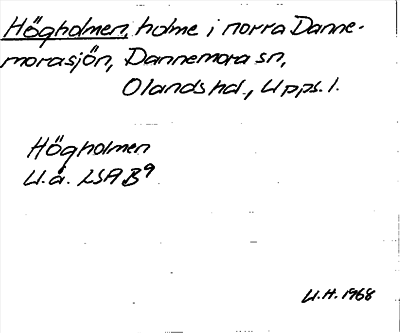 Högholmen, holme i norra Danne-
morasjön, Dannemora sn,
Olands hd., Upps. l.
Högholmen
U.å. LSA B9
U.H. 1968